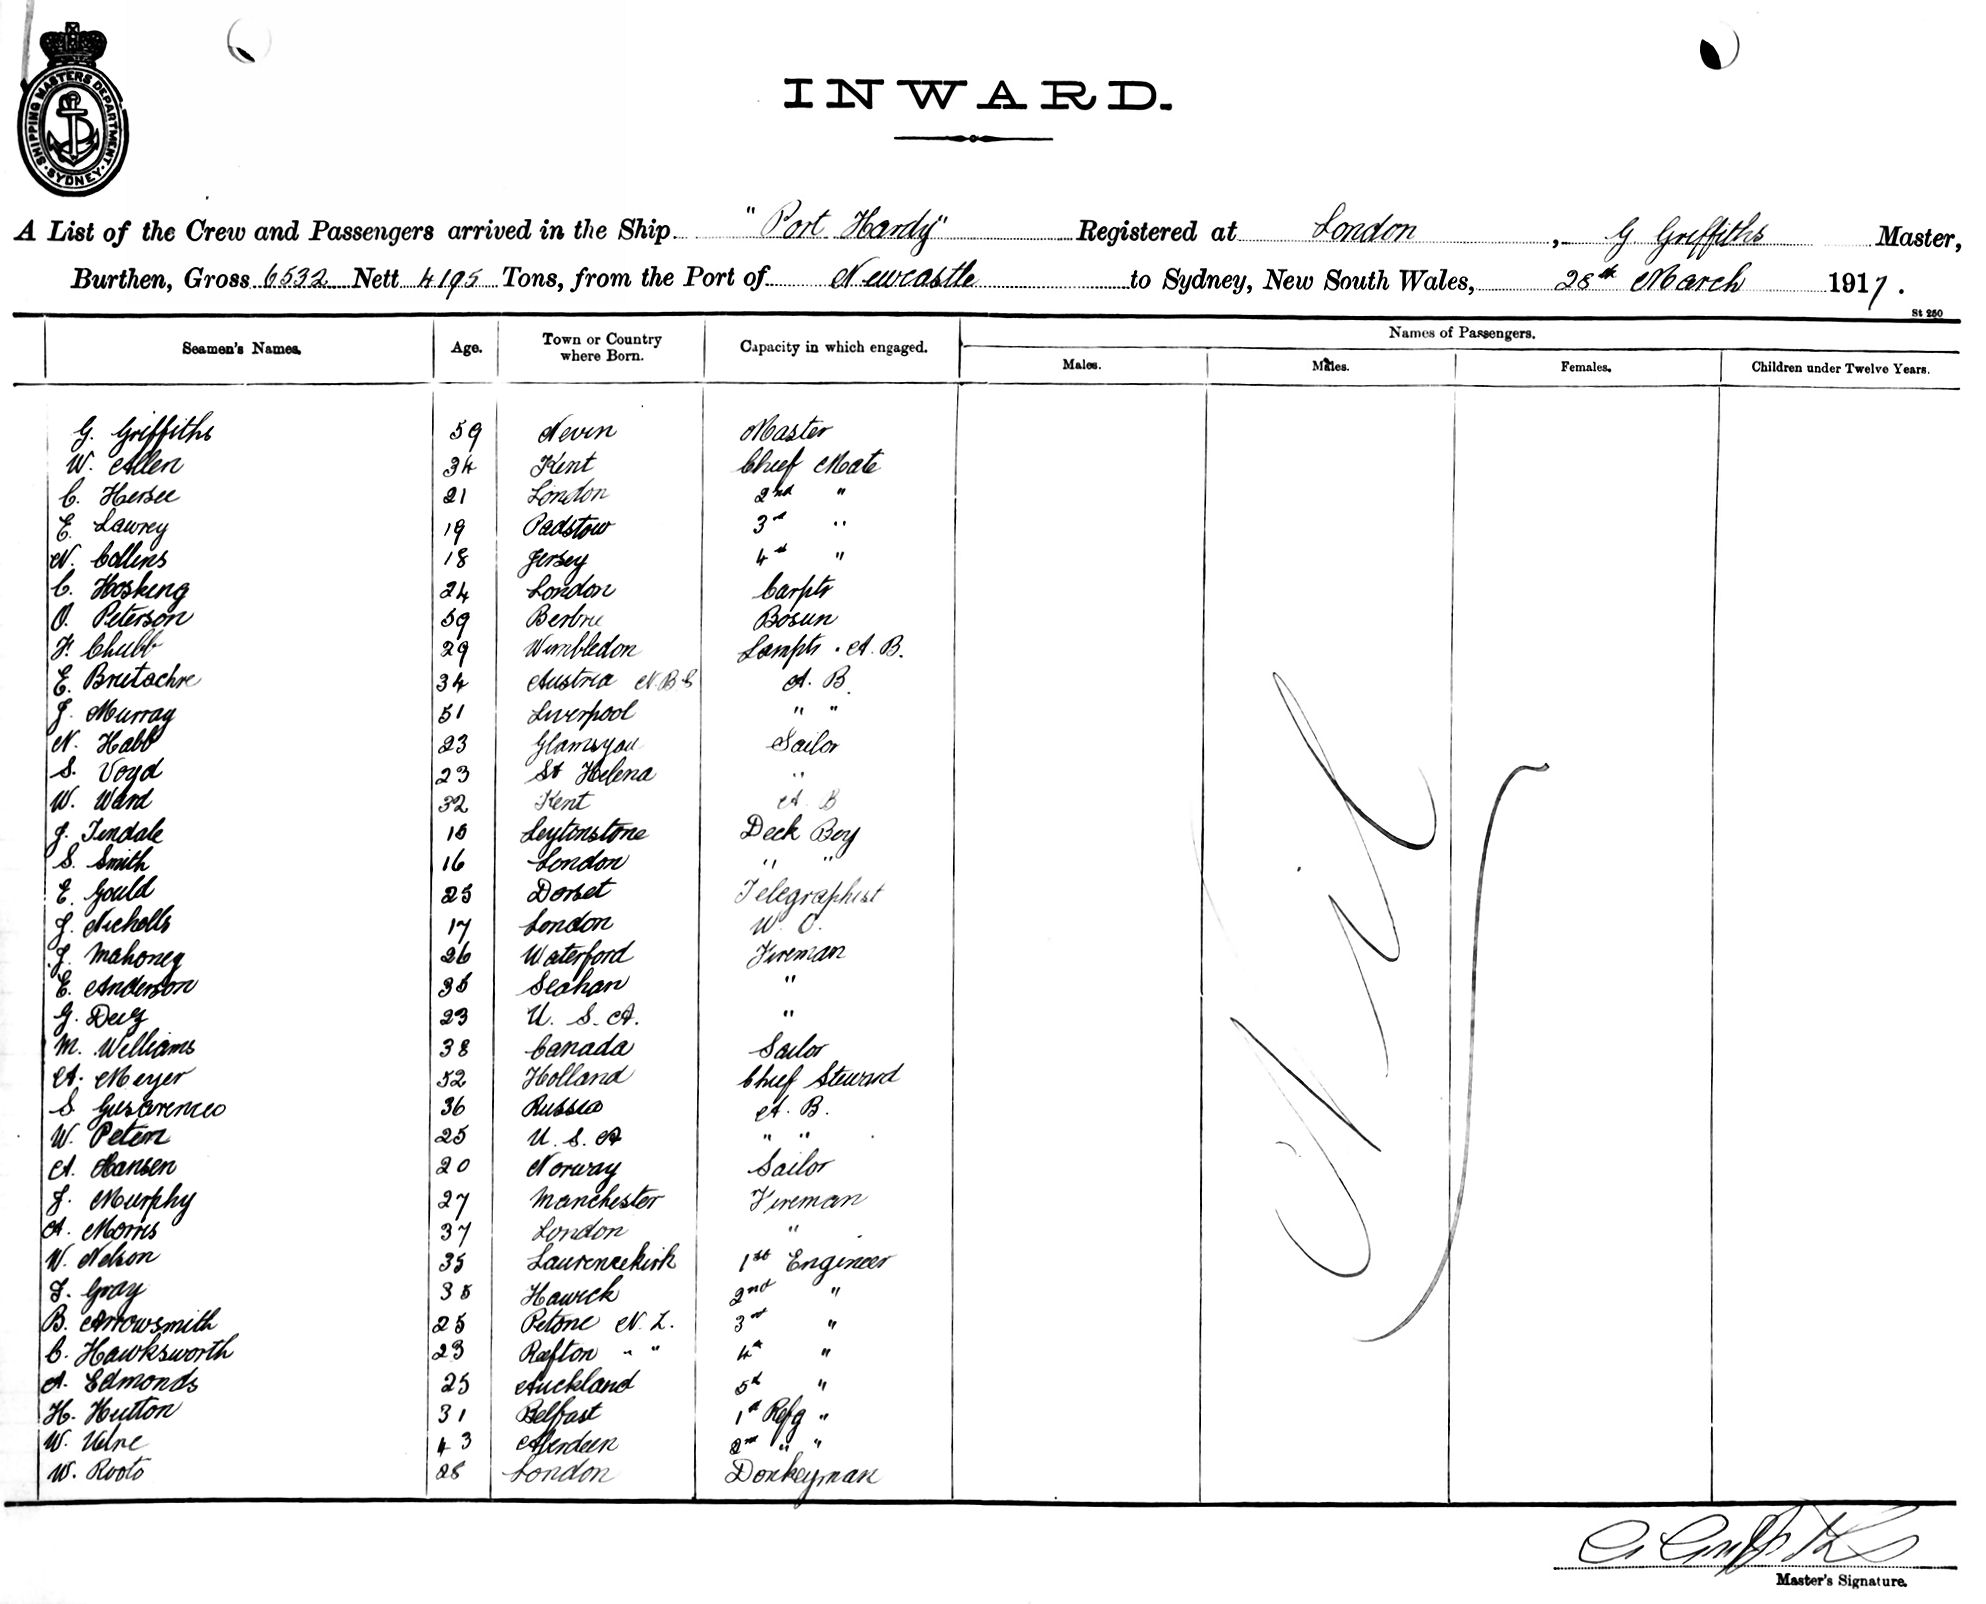 SHIPPING MASTERS DEPARTMENT · SYDNEY ·
INWARD.
A List of the Crew and Passengers arrived in the Ship "Port Hardy" Registered at London, G Griffiths Master,
Burthen, Gross 6532 Nett 4195 Tons, from the Port of Newcastle to Sydney, New South Wales, 28th March 1917.
St 250
Seamen's Names. Age. Town or Country where Born. Capacity in which engaged. Names of Passengers.
Males. Males. Females. Children under Twelve Years.
G. Griffiths 59 Nevin Master
W. Allen 34 Kent Chief Mate
C. Hersee 21 London 2nd "
E. Lawrey 19 Padstow 3rd "
N. Collins 18 Jersey 4th "
C. Hosking 24 London Carptr
O. Peterson 59 Bosun
F. Chubb 29 Wimbledon Lamptr. A.B.
E. 34 Austria N.B.S A.B.
J. Murray 51 Liverpool " "
N. Habb 23 Sailor
S. Voyd 23 St Helena "
W. Ward 32 Kent A. B
J. Tindale Leytonstone Deck Boy
S. Smith 16 London " "
E. Gould 25 Dorset Telegraphist
J. Nicholls 17 London W. O.
J. Mahoney 26 Waterford Fireman
E. Anderson 35 Seahan "
G. 23 U. S. A. "
M. Williams 38 Canada Sailor
A. Meyer 52 Holland Chief Steward
S. 36 Russia A. B.
W. Peters 25 U. S. A " "
A. Hansen 20 Norway Sailor
J. Murphy 27 Manchester Fireman
A. Morris 37 London "
W. Nelson 35 Laurencekirk 1st Engineer
J. Gray 35 Hawick 2nd "
B. Arrowsmith 25 Petone N.Z. 3rd "
C. Hawksworth 23 " " 4th "
A. Edmonds 25 Auckland 5th "
H. Hutton 31 Belfast 1st Refg "
W. 43 Aberdeen 2nd " "
W. Roots 28 London Donkeyman
Nil
G Griffiths
Master's Signature.